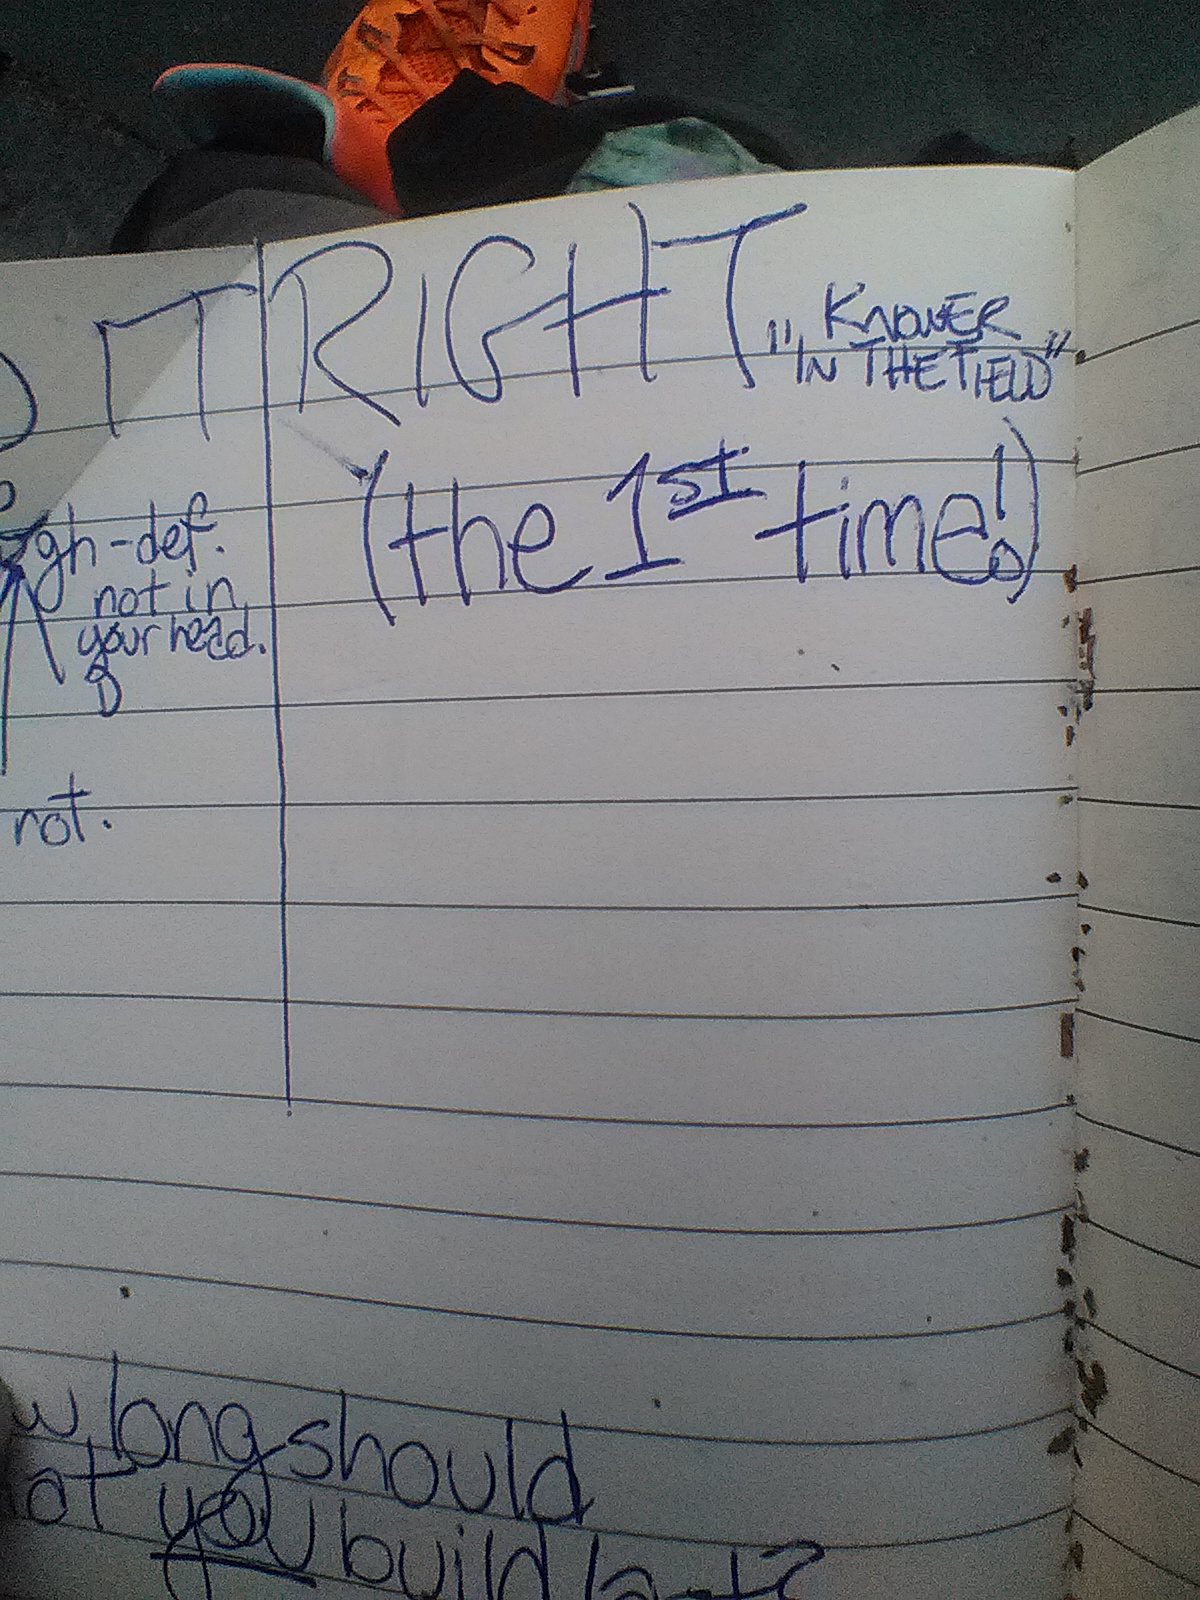 IT RIGHT "KNOWER
IN THE FIELD"
(the 1st time!)
gh-def.
not in
your head.
not.
w long should
at you build last?